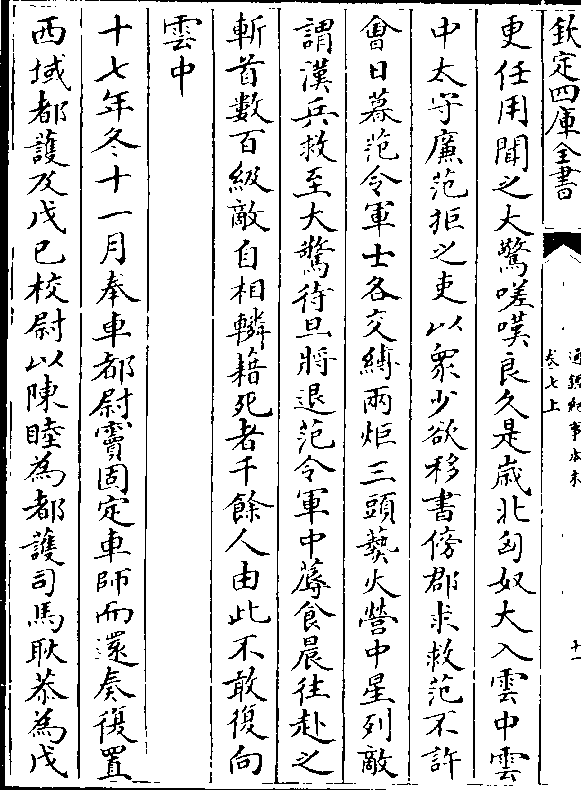 欽定四庫全書
通鑑紀事本末
卷七上
十一
更任用聞之大驚嗟嘆良久是歲北匈奴大入雲中雲
中太守廉范拒之吏以衆少欲移書傍郡求救范不許
㑹日暮范令軍士各交縛兩炬三頭爇火營中星列敵
謂漢兵救至大驚待旦將退范令軍中蓐食晨往赴之
斬首數百級敵自相轔藉死者千餘人由此不敢復向
雲中
十七年冬十一月奉車都尉竇固定車師而還奏復置
西域都護及戊己校尉以陳睦為都護司馬耿恭為戊